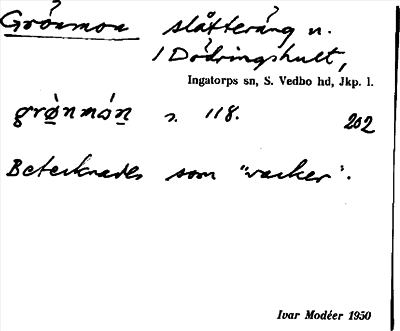 Grönmon slåtteräng n.
/ Dödringshult,
Ingatorps sn, S. Vedbo hd, Jkp. l.
grò̤nmón s. 118. 202
Betecknades som "vacker".
Ivar Modéer 1950